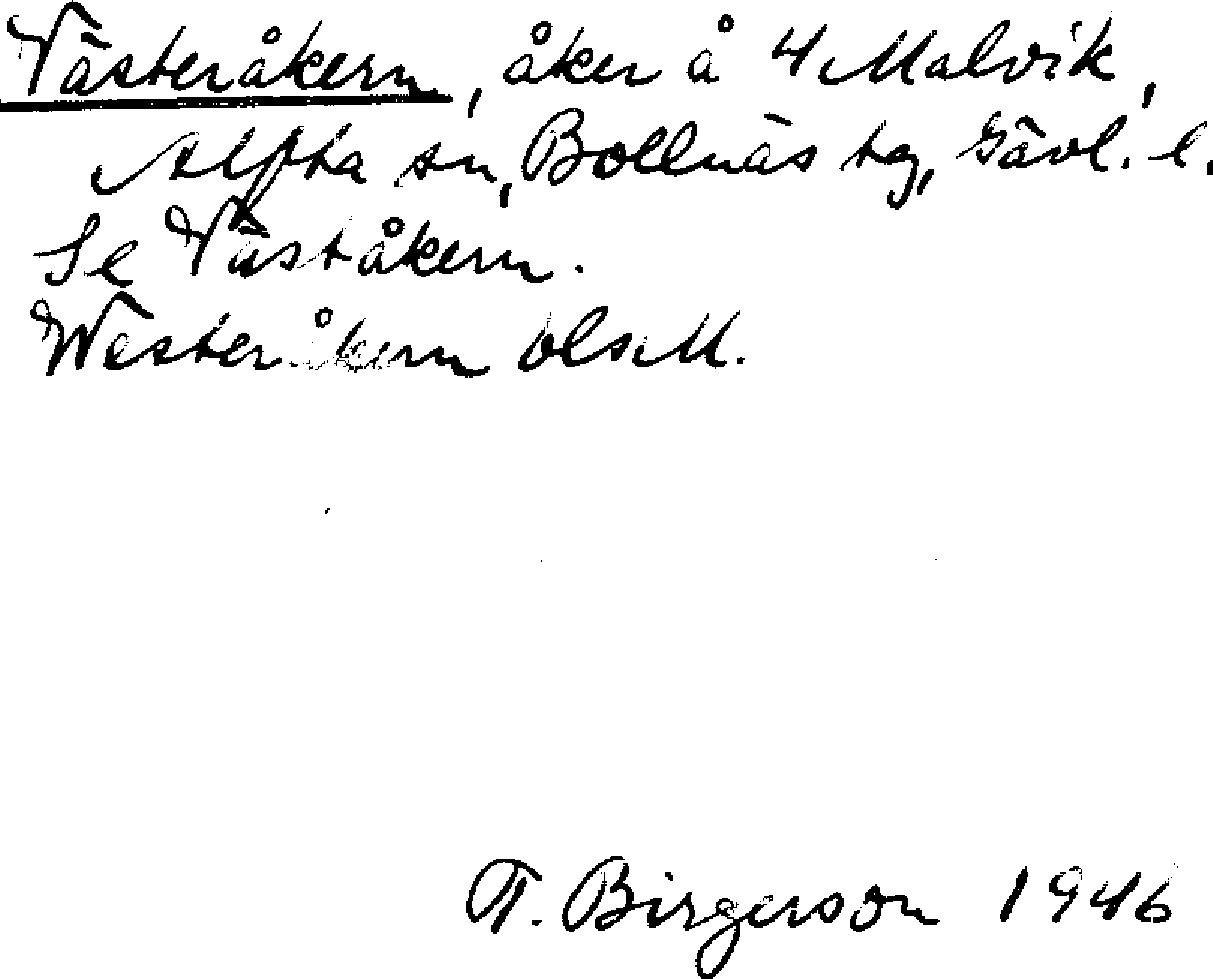 Västeråkern, åker å 4 Malvik,
Alfta sn, Bollnäs tg, Gävl. l.
Se Väståkern.
Westeråkern OlsM.
T. Birgerson 1946